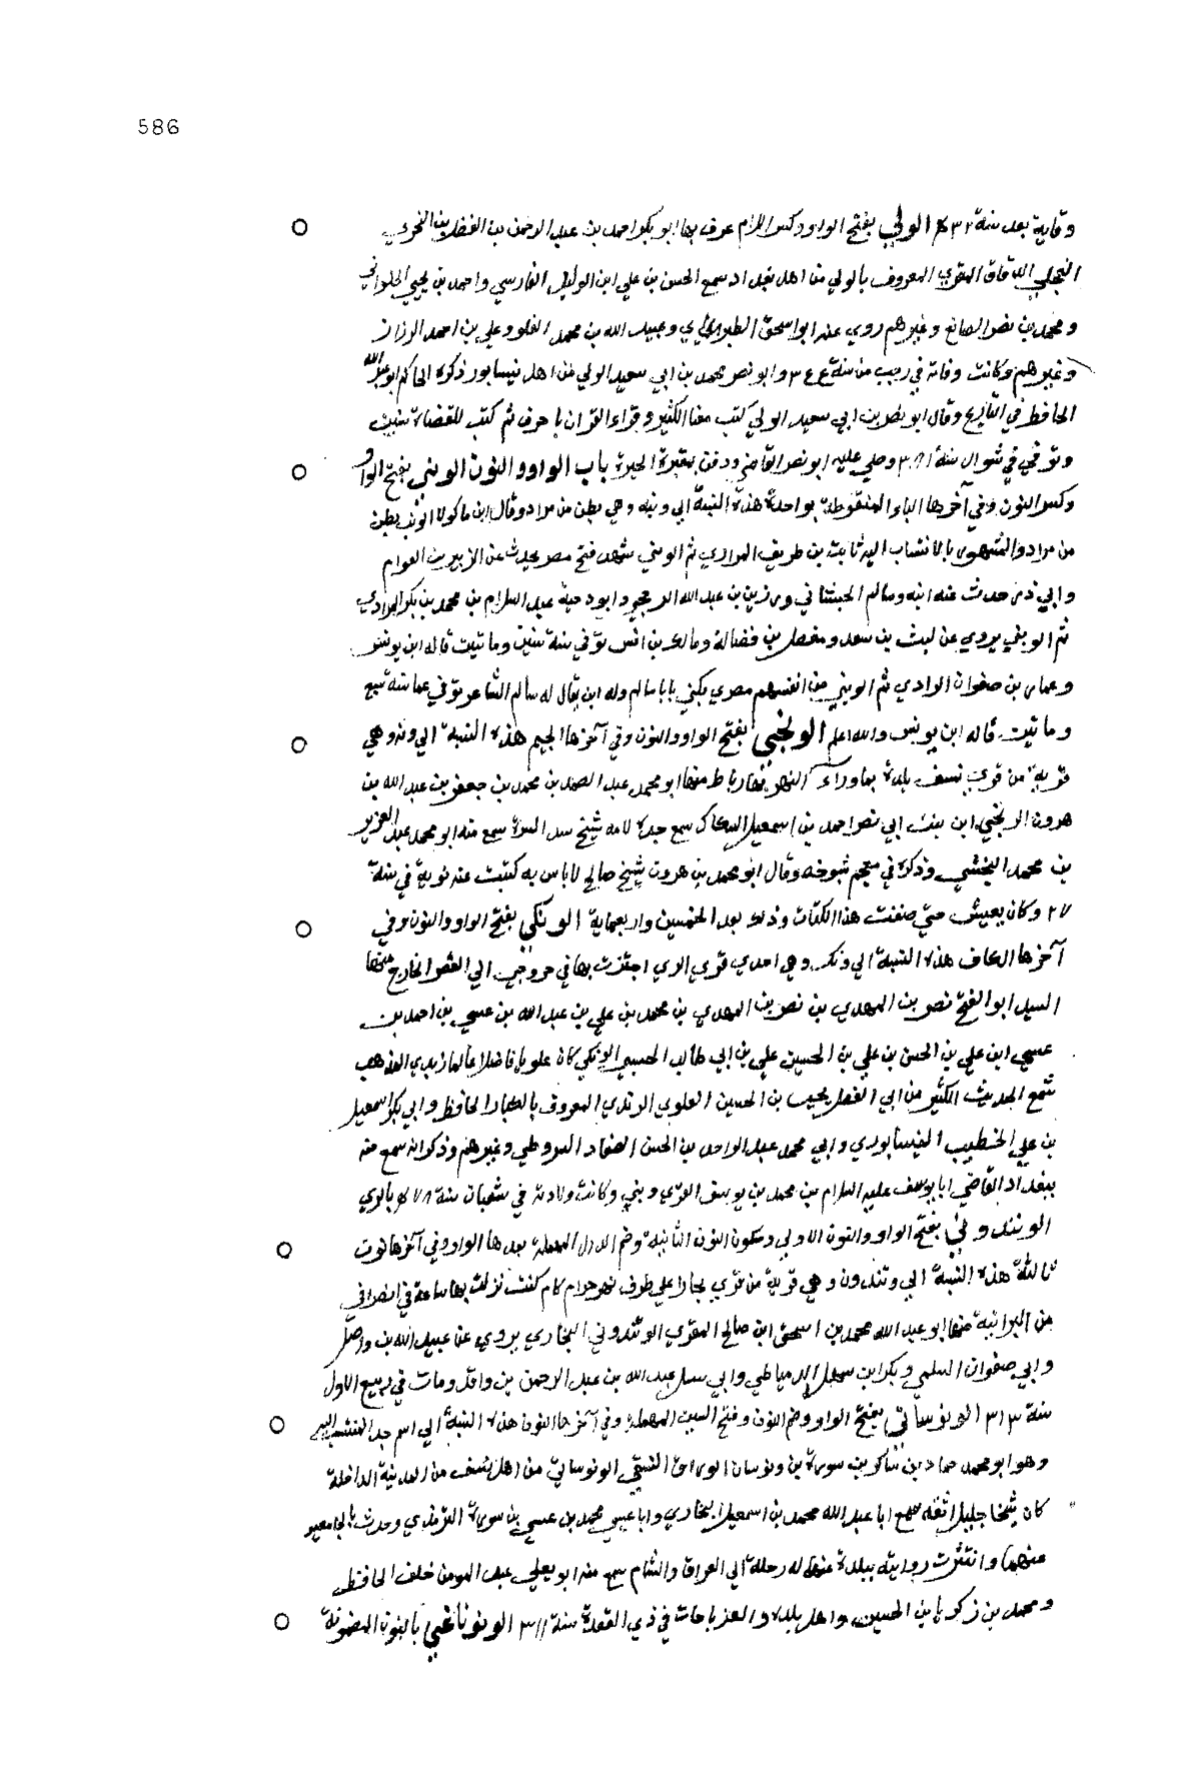 586
وقاية بعد سنة ٤٣٢ الولي بفتح الواو وكسر اللام عرف بها ابو بكر احمد بن عبد الرحمن بن الفضل بن البختري
العجلي الدقاق المقري المعروف بالولي من اهل بغداد سمع الحسن بن علي ابن الوليد الفارسي واحمد بن يحيي الحلواني
ومحمد بن نصر الصائغ وغيرهم روي عنه ابو اسحق الطبري وعبيد الله بن محمد الفلو وعلي بن احمد الرزاز
وغيرهم وكانت وفاته في رجب من سنة ٣٤٤ وابو نصر محمد بن ابي سعيد الولي من اهل نيسابور ذكره الحاكم ابو عبد الله
الحافظ في التاريخ وقال ابو نصر بن ابي سعيد الولي كتب معنا الكثير وقراء القران باحرف ثم كتب للقضاة سنين
وتوفي في شوال سنة وصلي عليه ابو نصر القاضي ودفن بمقبرة الحيرة باب الواو والنون الونبي بفتح الواو
وكسر النون وفي آخرها الباء المنقوطة بواحدة هذه النسبة الي ونبه وهي بطن من مراد وقال ابن ماكولا الونب بطن
من مراد والمشهور بالانتساب اليه ثابت بن طريف المرادي ثم الونبي شهد فتح مصر يحدث عن الزبير بن العوام
وابي ذر حدث عنه ابنه وسالم الجيشاني ورزين بن عبد الله وابو دحية عبد السلام بن محمد بن بكر المرادي
ثم الونبي يروي عن ليث بن سعد ومفضل بن فضالة ومالك بن انس توفي في سنة ومائتين قاله ابن يونس
وعمار بن صفوان المرادي ثم الونبي من انفسهم مصري يكني بابا سالم وله ابن يقال له سالم الشاعر توفي عمار سنة سبع
ومائتين قاله ابن يونس والله اعلم الونجي بفتح الواو والنون وفي آخرها الجيم هذه النسبة الي ونه وهي
قرية من قري نسف بلدة بما وراء النهر بها رباط منها ابو محمد عبد الصمد بن محمد بن جعفر بن عبد الله بن
هرون الونجي ابن بنت ابي نصر احمد بن اسمعيل السكاك سمع جده لامه شيخ سمع منه ابو محمد عبد العزيز
بن محمد النخشبي وذكره في معجم شيوخه وقال ابو محمد بن هرون شيخ صالح لا باس به كتبت عنه نوبة في سنة
٢٧ وكان يعيش حتي صنفت هذا الكتاب وذلك بعد الخمسين واربعماية الونكي بفتح الواو والنون وفي
آخرها الكاف هذه النسبة الي ونك وهي احدي قري الري اجتزت بها في خروجي الي القصر الخارج منها
السيد ابو الفتح نصر بن المهدي بن نصر بن المهدي بن محمد بن علي بن عبد الله بن عيسي بن احمد بن
عيسي ابن علي بن الحسن بن علي بن الحسين علي بن ابي طالب الحسيني الونكي كان علويا فاضلا عالما زيدي المذهب
سمع الحديث الكثير من ابي الفضل يحيي بن الحسين العلوي الزيدي المعروف بالكيا الحافظ وابي بكر اسمعيل
بن علي الخطيب النيسابوري وابي محمد عبد الواحد بن الحسن الصفار وغيرهم وذكر انه سمع منه
ببغداد القاضي ابا يوسف عبد السلام بن محمد بن يوسف القزويني وكانت ولادته في شعبان سنة بالري
الونندوني بفتح الواو والنون الاولي وسكون النون الثانية وضم الدال المهملة بعدها الواو وفي آخرها نون
ثالثة هذه النسبة الي ونندون وهي قرية من قري بخارا علي طرف نهر حرام كام كنت نزلت بها ساعة في انصرافي
من البرانية منها ابو عبد الله محمد بن اسحق ابن صالح المقري الونندوني البخاري يروي عن عبيد الله بن واصل
وابي صفوان السلمي وبكر ابن سهل الدمياطي وابي سهل عبد الله بن عبد الرحمن بن واقد ومات في ربيع الاول
سنة ٣١٣ الونوساني بفتح الواو وضم النون وفتح السين المهملة وفي آخرها النون هذه النسبة الي اسم جد المنتسب اليه
وهو ابو محمد حماد بن شاكر بن سورة بن ونوسان الوراق النسفي الونوساني من اهل نسف من المدينة الداخلة
كان شيخا جليلا ثقة سمع ابا عبد الله محمد بن اسمعيل البخاري وابا عيسي محمد بن عيسي بن سورة الترمذي وحدث بالجامعين
عنهما وانتشرت روايته ببلدة عنها له رحلة الي العراق والشام سمع منه ابو يعلي عبد المومن خلف الحافظ
ومحمد بن زكريا بن الحسين واهل بلده والغربا مات في ذي القعدة سنة ٣١١ الونوناغي بالنون المضمونة